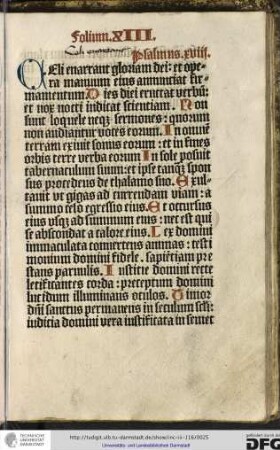 Folium. XIII.
Psalmus. xviij.
CEli enarrant gloriam dei: et ope
ra manuum eius annunciat fir
mamentum. Dies diei eructat verbū:
et nox nocti indicat scientiam. Non
sunt loquele neqꝫ sermones: quorum
non audiantur voces eorum. In omnē
terram exiuit sonus eorum: et in fines
orbis terre verba eorum. In sole posuit
tabernaculum suum: et ipse tanqꝫ spon
sus procedens de thalamo suo. Exul-
tauit vt gigas ad currendam viam: a
summo celo egressio eius. Et occursus
eius vsqꝫ ad summum eius: nec est qui
se abscondat a calore eius. Lex domini
immaculata conuertens animas: testi
monium domini fidele, sapiētiam pre
stans paruulis. Iusticie domini recte
letificantes corda: preceptum domini
lucidum illuminans oculos. Timor
dn̄i sanctus permanens in seculum scl̄i:
iudicia domini vera iustificata in semet
TECHNISCHE
UNIVERSITÄT
DARMSTADT
http://tudigit.ulb.tu-darmstadt.de/show/inc-iii-116/0025
Universitäts- und Landesbibliothek Darmstadt
gefördert durch die
DFG